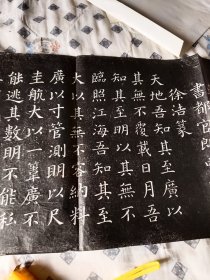 書都官郎
徐浩篆
天地吾知其至廣以
其無不覆載日月吾
知其至明以其無不
臨照江海吾知其至
大以其無不容納料
廣以寸管測明以尺
圭航大以一葦廣不
能逃其數明不能私